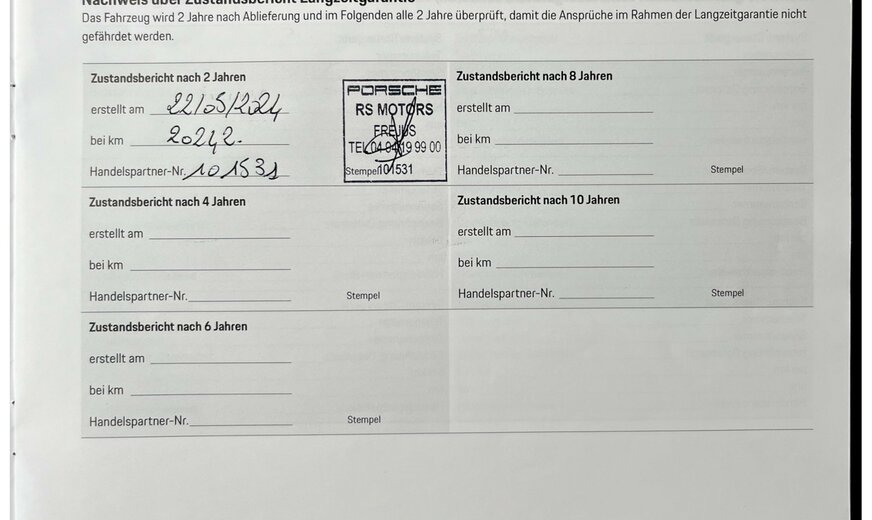 Nachweis über Zustandsbericht Langzeitgarantie
Das Fahrzeug wird 2 Jahre nach Ablieferung und im Folgenden alle 2 Jahre überprüft, damit die Ansprüche im Rahmen der Langzeitgarantie nicht
gefährdet werden.
Zustandsbericht nach 2 Jahren
erstellt am 22/05/2024
bei km 20242.
Handelspartner-Nr. 101531
PORSCHE
RS MOTORS
FREJUS
TEL 04 94 19 99 00
Stempel 101531
Zustandsbericht nach 8 Jahren
erstellt am
bei km
Handelspartner-Nr.
Stempel
Zustandsbericht nach 4 Jahren
erstellt am
bei km
Handelspartner-Nr.
Stempel
Zustandsbericht nach 10 Jahren
erstellt am
bei km
Handelspartner-Nr.
Stempel
Zustandsbericht nach 6 Jahren
erstellt am
bei km
Handelspartner-Nr.
Stempel